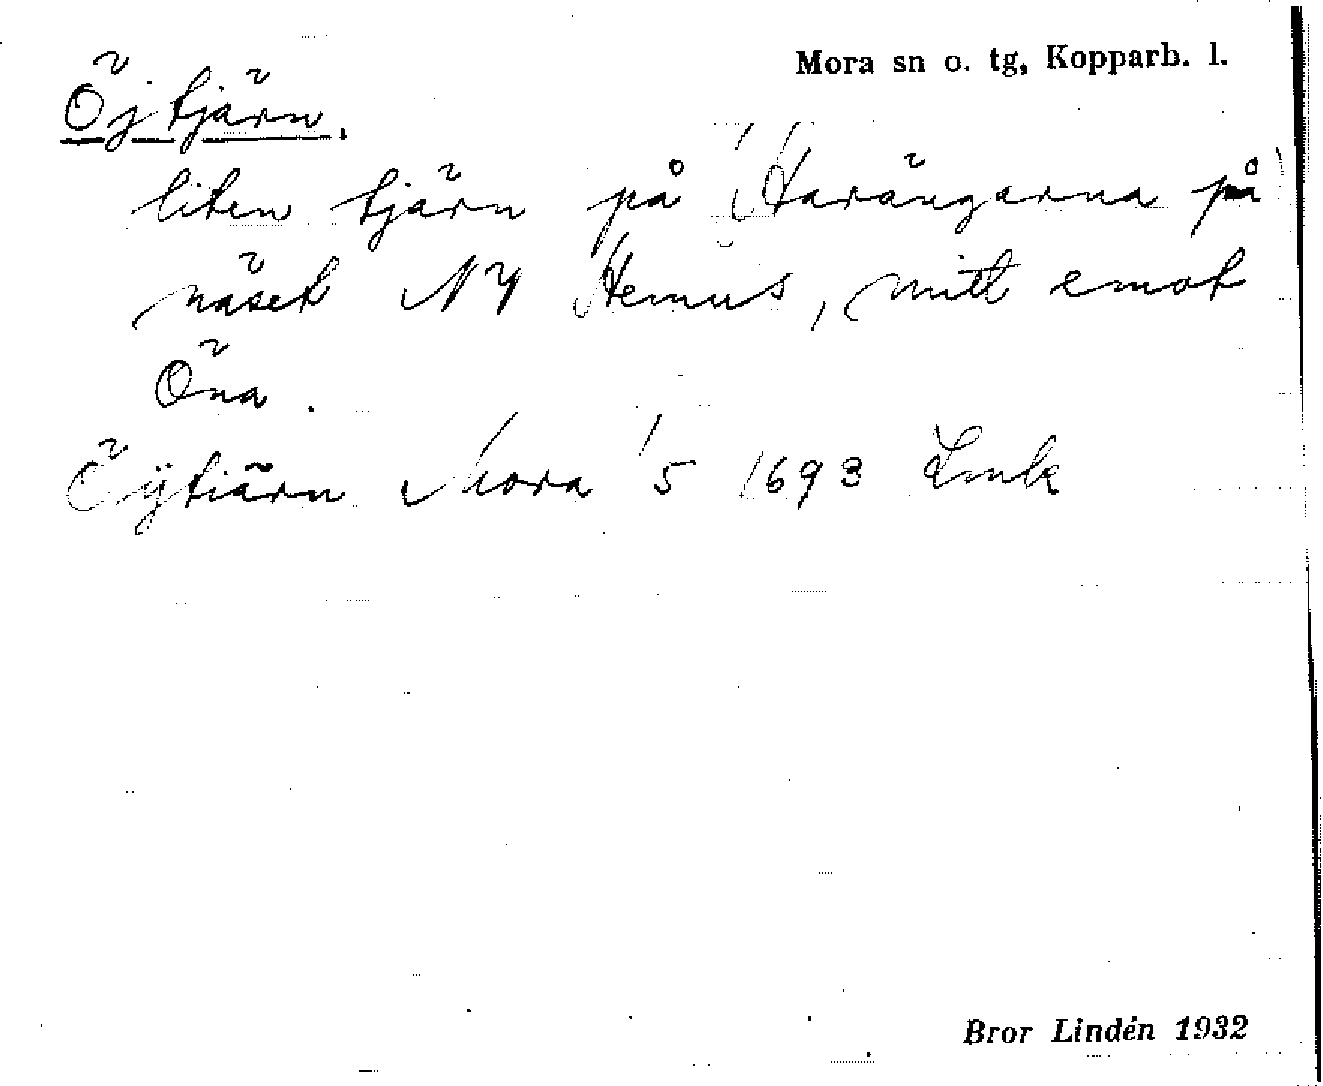 Mora sn o. tg, Kopparb. l.
Öjtjärn.
liten tjärn på Harängarna på
näset NV Hemus, mitt emot
Öna.
Öÿtiärn Mora 5 1693 Lmk
Bror Lindén 1932